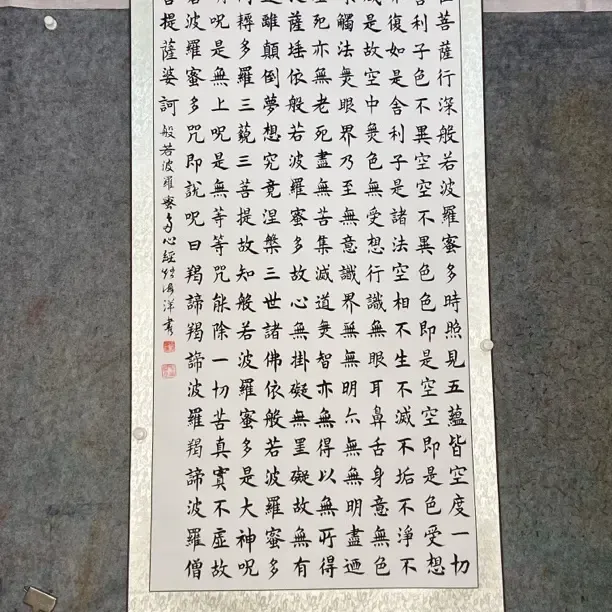 菩薩行深般若波羅蜜多時照見五蘊皆空度一切
舍利子色不異空空不異色色即是空空即是色受想
復如是舍利子是諸法空相不生不滅不垢不淨不
減是故空中無色無受想行識無眼耳鼻舌身意無色
觸法無眼界乃至無意識界無無明亦無無明盡迺
死亦無老死盡無苦集滅道無智亦無得以無所得
薩埵依般若波羅蜜多故心無掛礙無罣礙故無有
離顛倒夢想究竟涅槃三世諸佛依般若波羅蜜多
耨多羅三藐三菩提故知般若波羅蜜多是大神呪
呪是無上呪是無等等咒能除一切苦真實不虛故
若波羅蜜多咒即說呪曰羯諦羯諦波羅羯諦波羅僧
提薩婆訶 般若波羅蜜多心經 海洋書